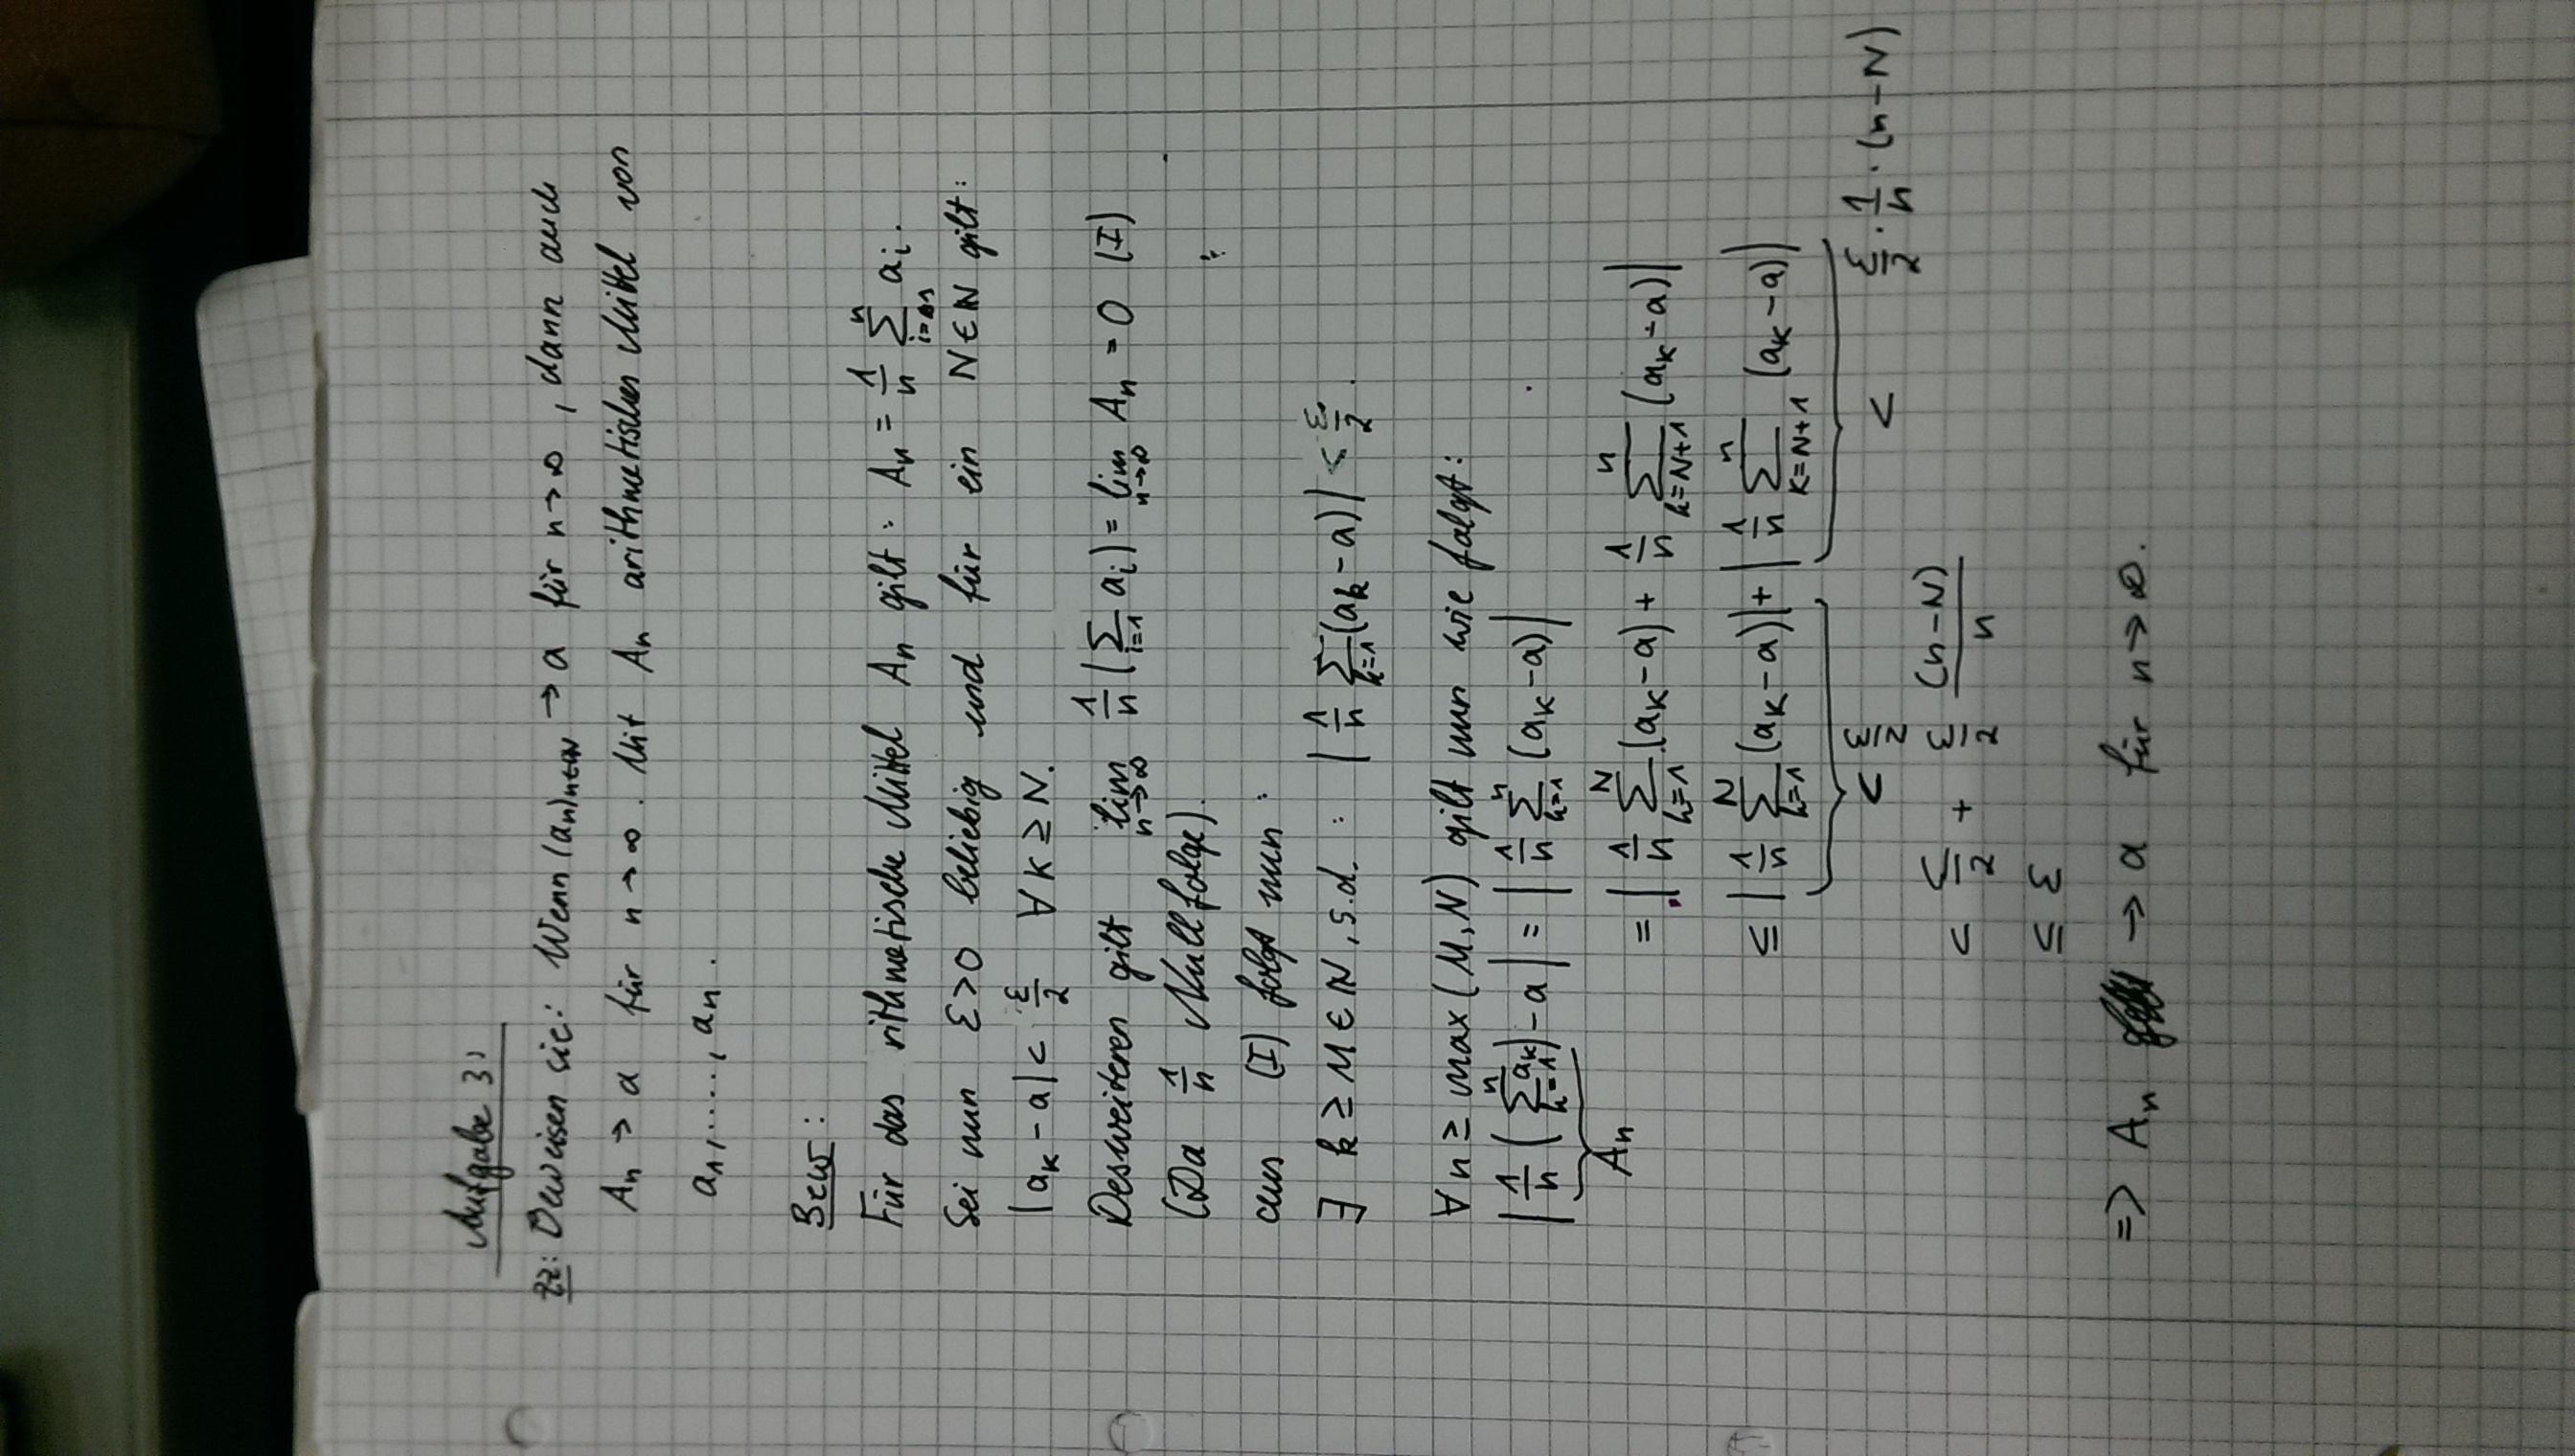 Aufgabe 3)
zz: Beweisen sie: Wenn (aₙ)ₙ∈ℕ → a für n→∞, dann auch
Aₙ → a für n→∞. Mit Aₙ arithmetisches Mittel von
a₁, ....., aₙ.
Bew:
Für das rithmetische Mittel Aₙ gilt: Aₙ = 1/n ∑_{i=1}^{n} aᵢ.
Sei nun ε>0 beliebig und für ein N∈ℕ gilt:
|aₖ - a| < ε/2 ∀ k ≥ N.
Desweiteren gilt lim_{n→∞} 1/n (∑_{i=1} aᵢ) = lim_{n→∞} Aₙ = 0 (I)
(Da 1/n Nullfolge).
aus (I) folgt nun:
∃ k ≥ M ∈ ℕ, s.d. : |1/n ∑_{k=1} (aₖ - a)| < ε/2.
∀ n ≥ max(M,N) gilt nun wie folgt:
|1/n (∑_{k=1}^{n} aₖ) - a| = |1/n ∑_{k=1}^{n} (aₖ - a)|
Aₙ
= |1/n ∑_{k=1}^{N} (aₖ - a) + 1/n ∑_{k=N+1}^{n} (aₖ - a)|
≤ |1/n ∑_{k=1}^{N} (aₖ - a)| + |1/n ∑_{k=N+1}^{n} (aₖ - a)|
< ε/2 < ε/2 · 1/n · (n-N)
< ε/2 + ε/2 (n-N)/n
≤ ε
=> Aₙ → a für n→∞.